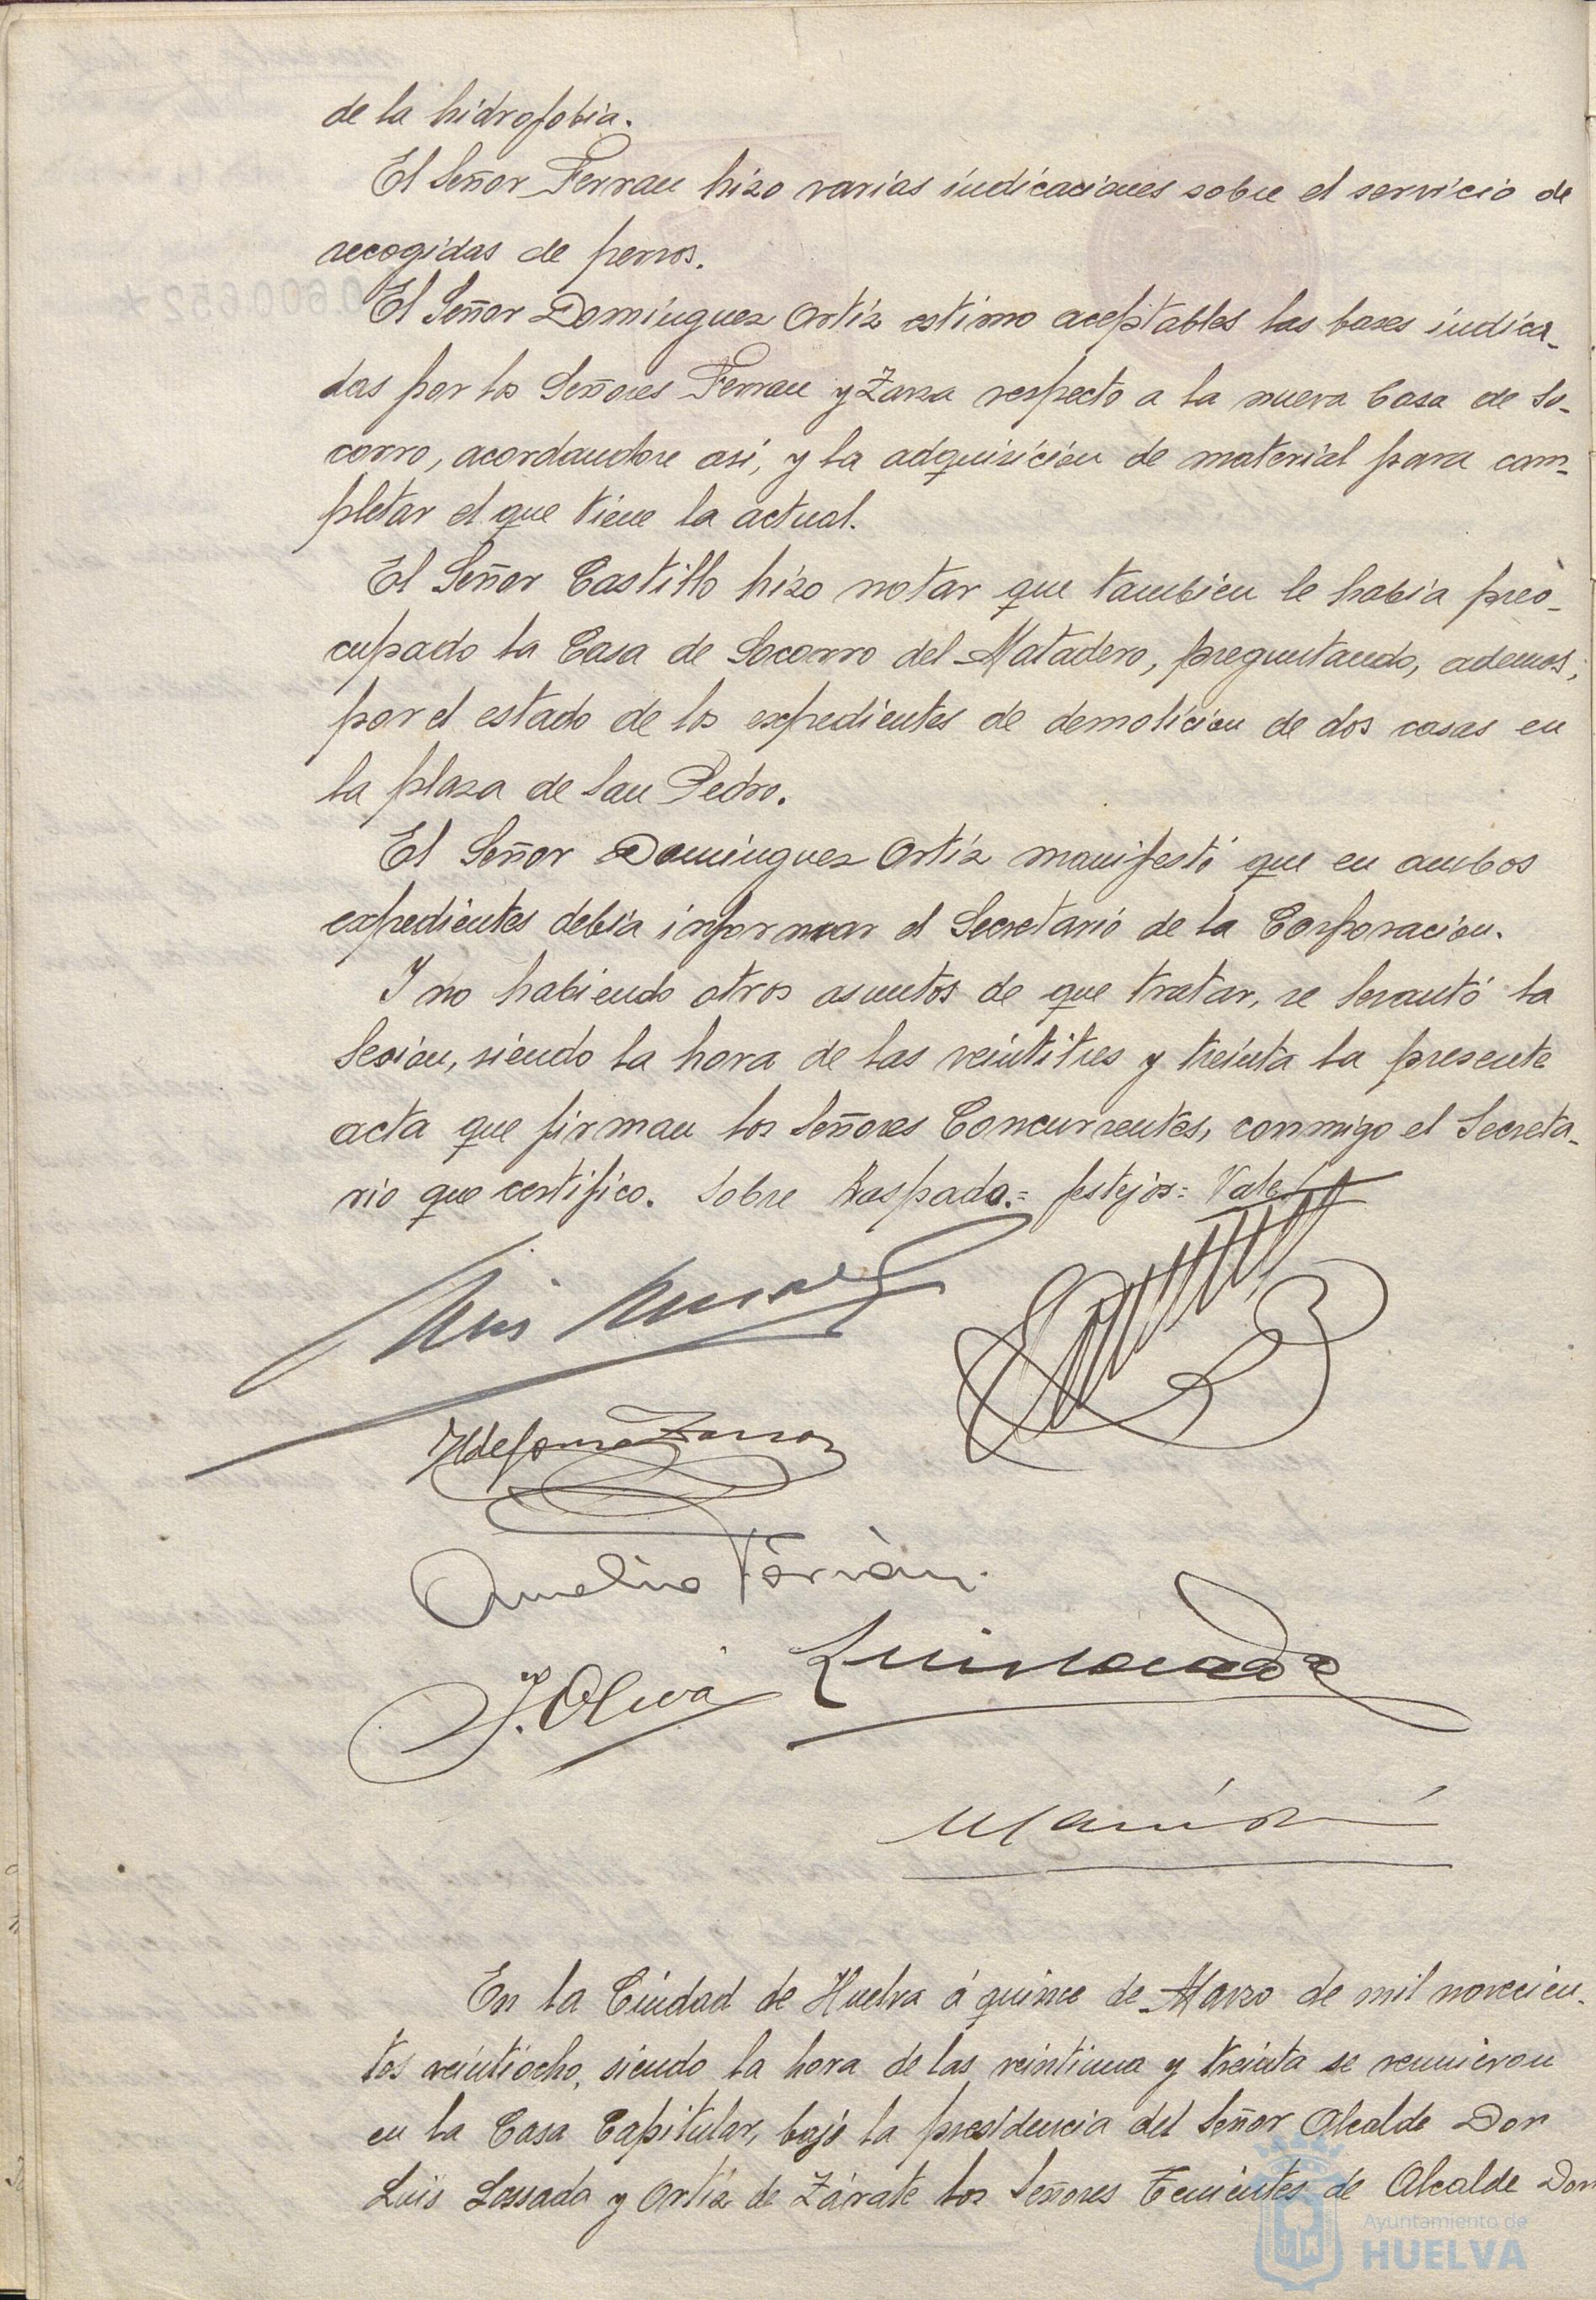 de la hidrofobia.
El Señor Ferrau hizo varias indicaciones sobre el servicio de
recogidas de perros.
El Señor Dominguez Ortíz estimo aceptables las bases indica-
das por los Señores Ferrau y Zarza respecto a la nueva Casa de So-
corro, acordandose asi, y la adquisición de material para com-
pletar el que tiene la actual.
El Señor Castillo hizo notar que tambien le habia preo-
cupado la Casa de Socorro del Matadero, preguntando, ademas,
por el estado de los expedientes de demolicion de dos casas en
la plaza de San Pedro.
El Señor Dominguez Ortíz manifestó que en ambos
expedientes debia informar el Secretario de la Corporación.
Y no habiendo otros asuntos de que tratar, se levantó la
Sesión, siendo la hora de las veintitres y treinta la presente
acta que firman los Señores Concurrentes, conmigo el Secreta-
rio que certifico. Sobre Raspado.= festejos= Vale
Ildefonso Zarza
J. Oliva
En la Ciudad de Huelva á quince de Marzo de mil novecien-
tos veintiocho, siendo la hora de las veintiuna y treinta se reunieron
en la Casa Capitular, bajo la presidencia del Señor Alcalde Don
Luis Lossada y Ortíz de Zárate los Señores Tenientes de Alcalde Don
Ayuntamiento de
HUELVA